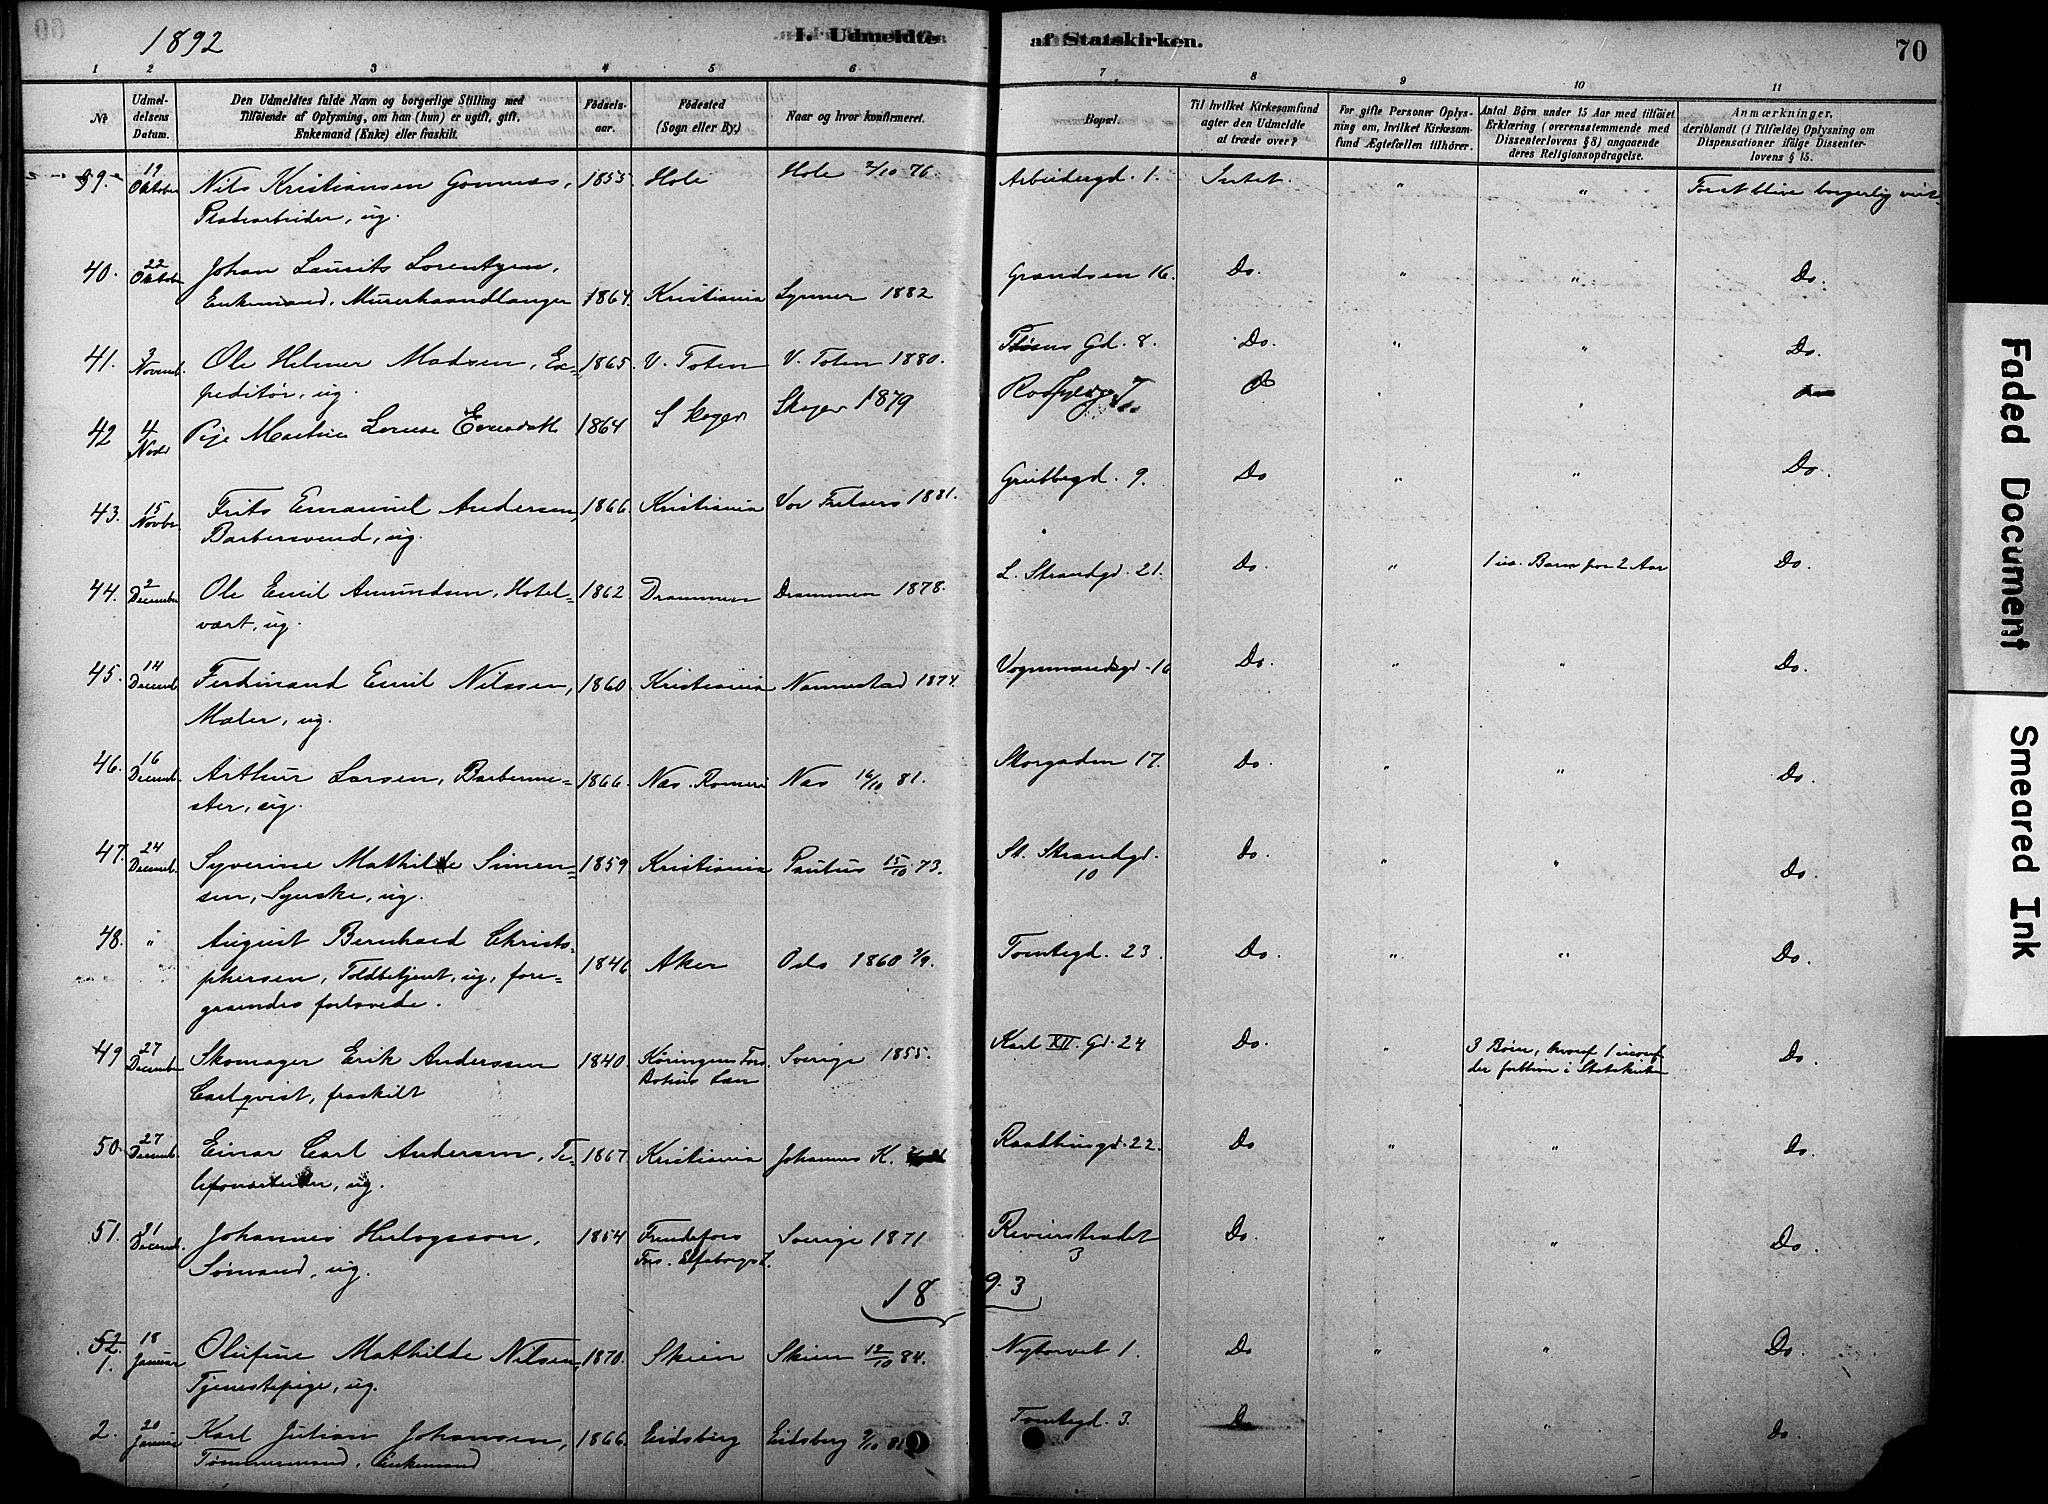 1892
I. Udmeldte af Statskirken.
70
1 2 3 4 5 6 7 8 9 10 11
No
Udmel-
delsens
Datum.
Den Udmeldtes fulde Navn og borgerlige Stilling med
Tilføiende af Oplysning, om han (hun) er ugift, gift,
Enkemand (Enke) eller fraskilt.
Fødsels-
aar.
Fødested
(Sogn eller By.)
Naar og hvor konfirmeret.
Bopæl.
Til hvilket Kirkesamfund
agter den Udmeldte
at træde over?
For gifte Personer Oplys-
ning om, hvilket Kirkesam-
fund Ægtefællen tilhører.
Antal Børn under 15 Aar med tilføiet
Erklæring (overensstemmende med
Dissenterlovens § 8) angaaende
deres Religionsopdragelse.
Anmærkninger,
deriblandt (i Tilfælde) Oplysning om
Dispensationer ifølge Dissenter-
lovens § 15.
39. 19 Oktober Nils Kristiansen Gomnæs, 1855 Hole Hole 2/10 76. Arbeidergd. 1. Intet. " " For at blive borgerlig viet.
Pladearbeider, ug.
40. 22 Oktober Johan Laurits Lorentzen,
Enkemand, Murerhaandlanger 1864. Kristiania 1882 Grændsen 16. Do. " " Do.
41. 3 Novemb. Ole Helmer Madsen, Ex- 1865. V. Toten V. Toten 1880. Gd. 8. Do. " " Do.
peditør, ug.
42 4 Novbr Pige 1864 Skoger Skoger 1879
43. 15 Novbr. Frits Emanuel Andersen, 1866. Kristiania Vor Frelsers 1881. Grubbegd. 9. Do " " Do.
Barbersvend, ug.
44. 2 December Ole Emil Amundsen, Hotel- 1862 Drammen Drammen 1878. L. Strandgd. 21. Do. " 1 Barn paa 2 Aar Do.
vært, ug.
45. 14 Decemb. Ferdinand Emil Nilssen, 1860. Kristiania Nannestad 1874. Vognmandsgd. 16 Do. " " Do.
Maler, ug.
46. 16 Decemb. Arthur Larsen, Barberme- 1866. Næs. Romeri Næs 16/10 81. Storgaden 17. Do. " " Do.
ster, ug.
47. 24 Decemb. Syverine Mathilde Simen- 1859 Kristiania Paulus 15/10 73. St. Strandgd. 10 Do. " " Do.
sen, Syerske, ug.
48. " August Bernhard Christo-
phersen, Toldbetjent, ug, fore- 1846 Aker Oslo 1860 Tomtegd. 23. Do. " " Do.
gaaendes forlovede.
49 27 December Skomager Erik Anderssen 1840. Sverige 1855. Karl XII. Gd. 24 Do. " 3 Børn, hvoraf 1 Do.
Carlqvist, fraskilt Læn forbliver i Statskirken
50. 27 Decemb. Einar Carl Andersen, Te- 1867. Kristiania Johannes K. Raadhusgd. 22. Do " " Do.
lefonarbeider, ug.
51. 31 Decemb. Johannes 1854 Sverige 1871 Revierstrædet 3 Do. " " Do.
Sømand, ug. Elfsborgs L.
1893
52. 1. 18 Januar Olufine Mathilde Nilsen, 1870. Skien Skien 12/10 84. Nytorvet 1. Do " " Do.
Tjenestepige, ug.
2. 20 Januar Karl Julian Johansen, 1866. Eidsberg Eidsberg Tomtegd. 3. Do " " Do.
Tømmermand, Enkemand
Faded Document
Smeared Ink